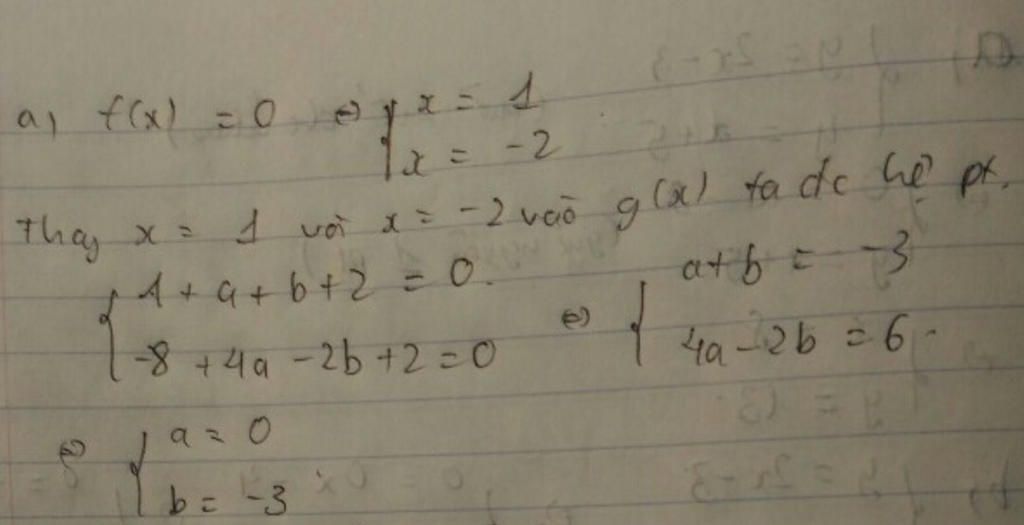 a) f(x) = 0 ⇔ { x = 1
x = -2
Thay x = 1 với x = -2 vào g(x) ta đc hệ pt.
{ 1 + a + b + 2 = 0. ⇔ { a + b = -3
-8 + 4a - 2b + 2 = 0 4a - 2b = 6.
⇔ { a = 0
b = -3